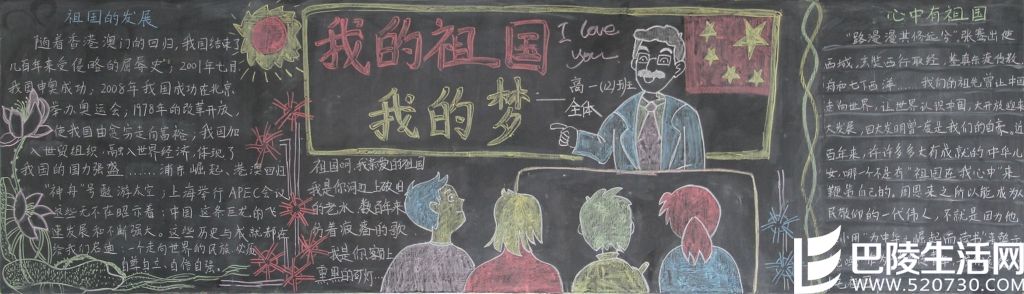 祖国的发展
随着香港澳门的回归，我国结束了
几百年来受侵略的屈辱史"；2001年七月
我国申奥成功；2008年我国成功在北京
举办奥运会，1978年的改革开放，
使我国由贫穷走向富裕，我国加
入世贸组织，融入世界经济，体现了
我国的国力强盛……浦东崛起、港澳回归
"神舟"号遨游太空；上海举行APEC会议
这些无不在昭示着：中国这条巨龙的飞
速发展和不断强大。这些历史与成就都在
给我们启迪：一个走向世界的民族必须
自尊自立、自信自强。
我的祖国
我的梦
I love
you
高一(2)班
全体
祖国呵，我亲爱的祖国
我是你河边上破旧
的老水 数百年来
纺着疲惫的歌
我是你额上
熏黑的矿灯…
心中有祖国
"路漫漫其修远兮"张骞出使
西域，玄奘西行取经，鉴真东渡传教，
舟七下西洋……我们的祖先冒
走向世界，让世界认识中国，大开放迎来
大发展，四大发明曾一度是我们的自豪，近
百年来，许许多多大有成就的中华儿
女，哪一个不是有"祖国在我心中"来
鞭策自己的，周恩来之所以能成为
民敬仰的一代伟人，不就是因为他
巴陵生活网
www.520730.com